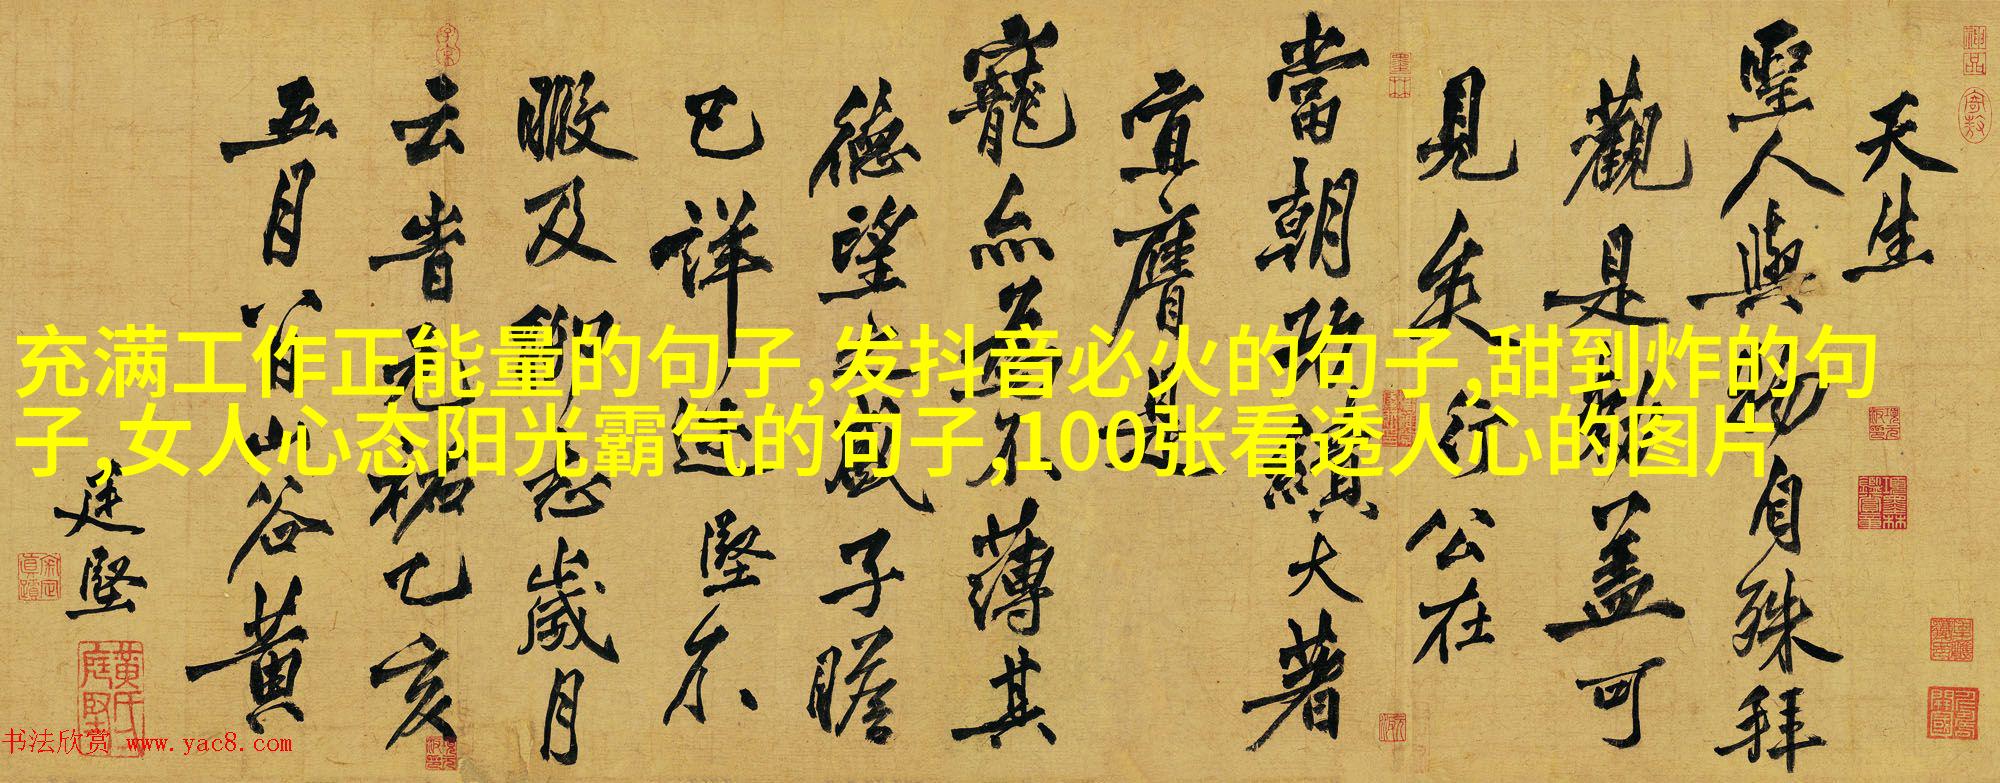 天生
聖人與物自殊拜
觀是蓋可
見矣行公在
當朝政績大著
宜膺是
寵亦不薄其
德望之盛子瞻
已詳述堅不
暇及聊志歲月
云旹元祐乙亥
五月八日山谷黃
庭堅
充满工作正能量的句子,发抖音必火的句子,甜到炸的句
子,女人心态阳光霸气的句子,100张看透人心的图片
书法欣赏 www.yac8.com